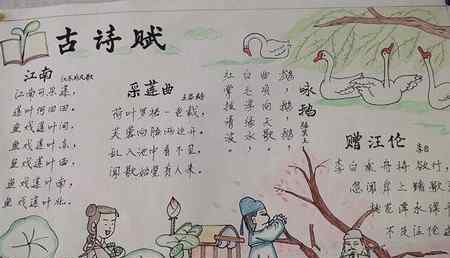 古诗赋
江南
江南可采莲,
莲叶何田田。
鱼戏莲叶间,
鱼戏莲叶东,
鱼戏莲叶西,
鱼戏莲叶南,
鱼戏莲叶北。
采莲曲 王昌龄
荷叶罗裙一色裁,
芙蓉向脸两边开。
乱入池中看不见,
闻歌始觉有人来。
咏鹅 骆宾王
鹅,鹅,鹅,
曲项向天歌,
白毛浮绿水,
红掌拨清波。
赠汪伦 李白
李白乘舟将欲行,
忽闻岸上踏歌
桃花潭水深千
不及汪伦送